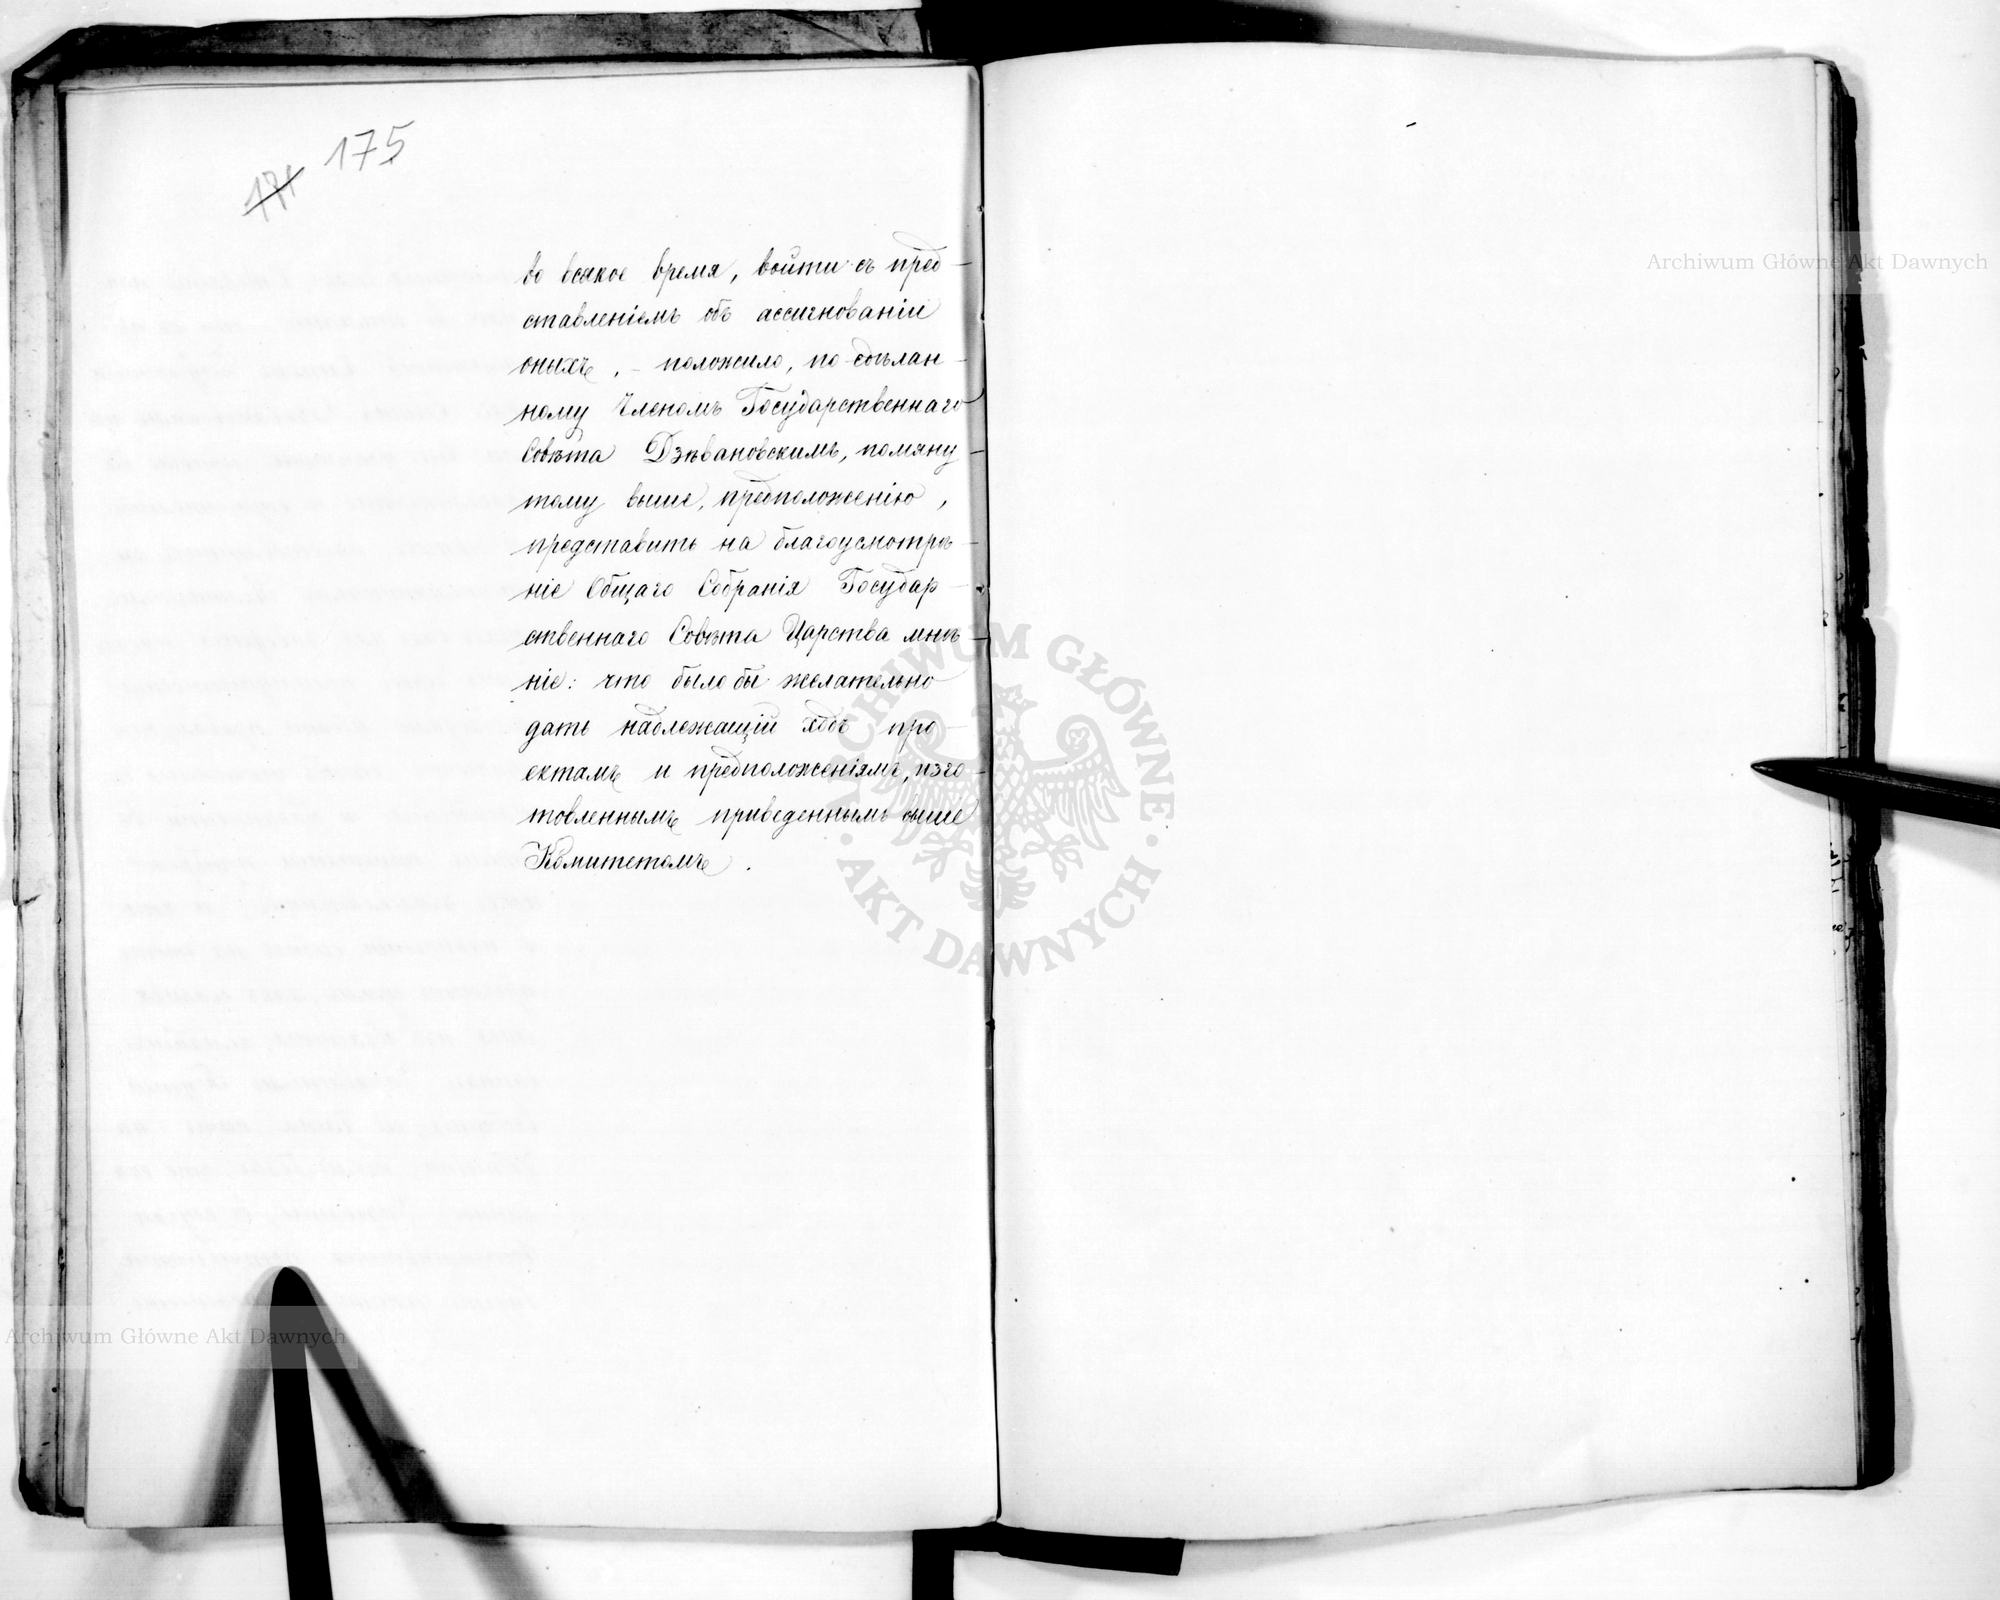 175
171
во всякое время, войти съ пред-
ставленіемъ объ ассигнованіи
оныхъ, - положило, по сдѣлан-
ному Членомъ Государственнаго
Совѣта Дзѣвановскимъ, помяну-
тому выше, предположенію,
представить на благоусмотрѣ-
ніе Общаго Собранія Государ-
ственнаго Совѣта Царства мнѣ-
ніе: что было бы желательно
дать надлежащій ходъ про-
ектамъ и предположеніямъ, изго-
товленнымъ приведеннымъ выше
Комитетомъ.
Archiwum Główne Akt Dawnych
ARCHIWUM GŁÓWNE
AKT DAWNYCH
Archiwum Główne Akt Dawnych